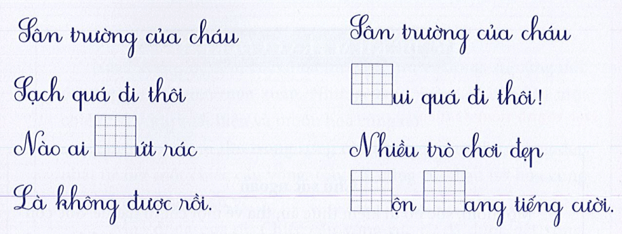 Sân trường của cháu
Sạch quá đi thôi
Nào ai ứt rác
Là không được rồi.
Sân trường của cháu
ui quá đi thôi!
Nhiều trò chơi đẹp
ộn ang tiếng cười.